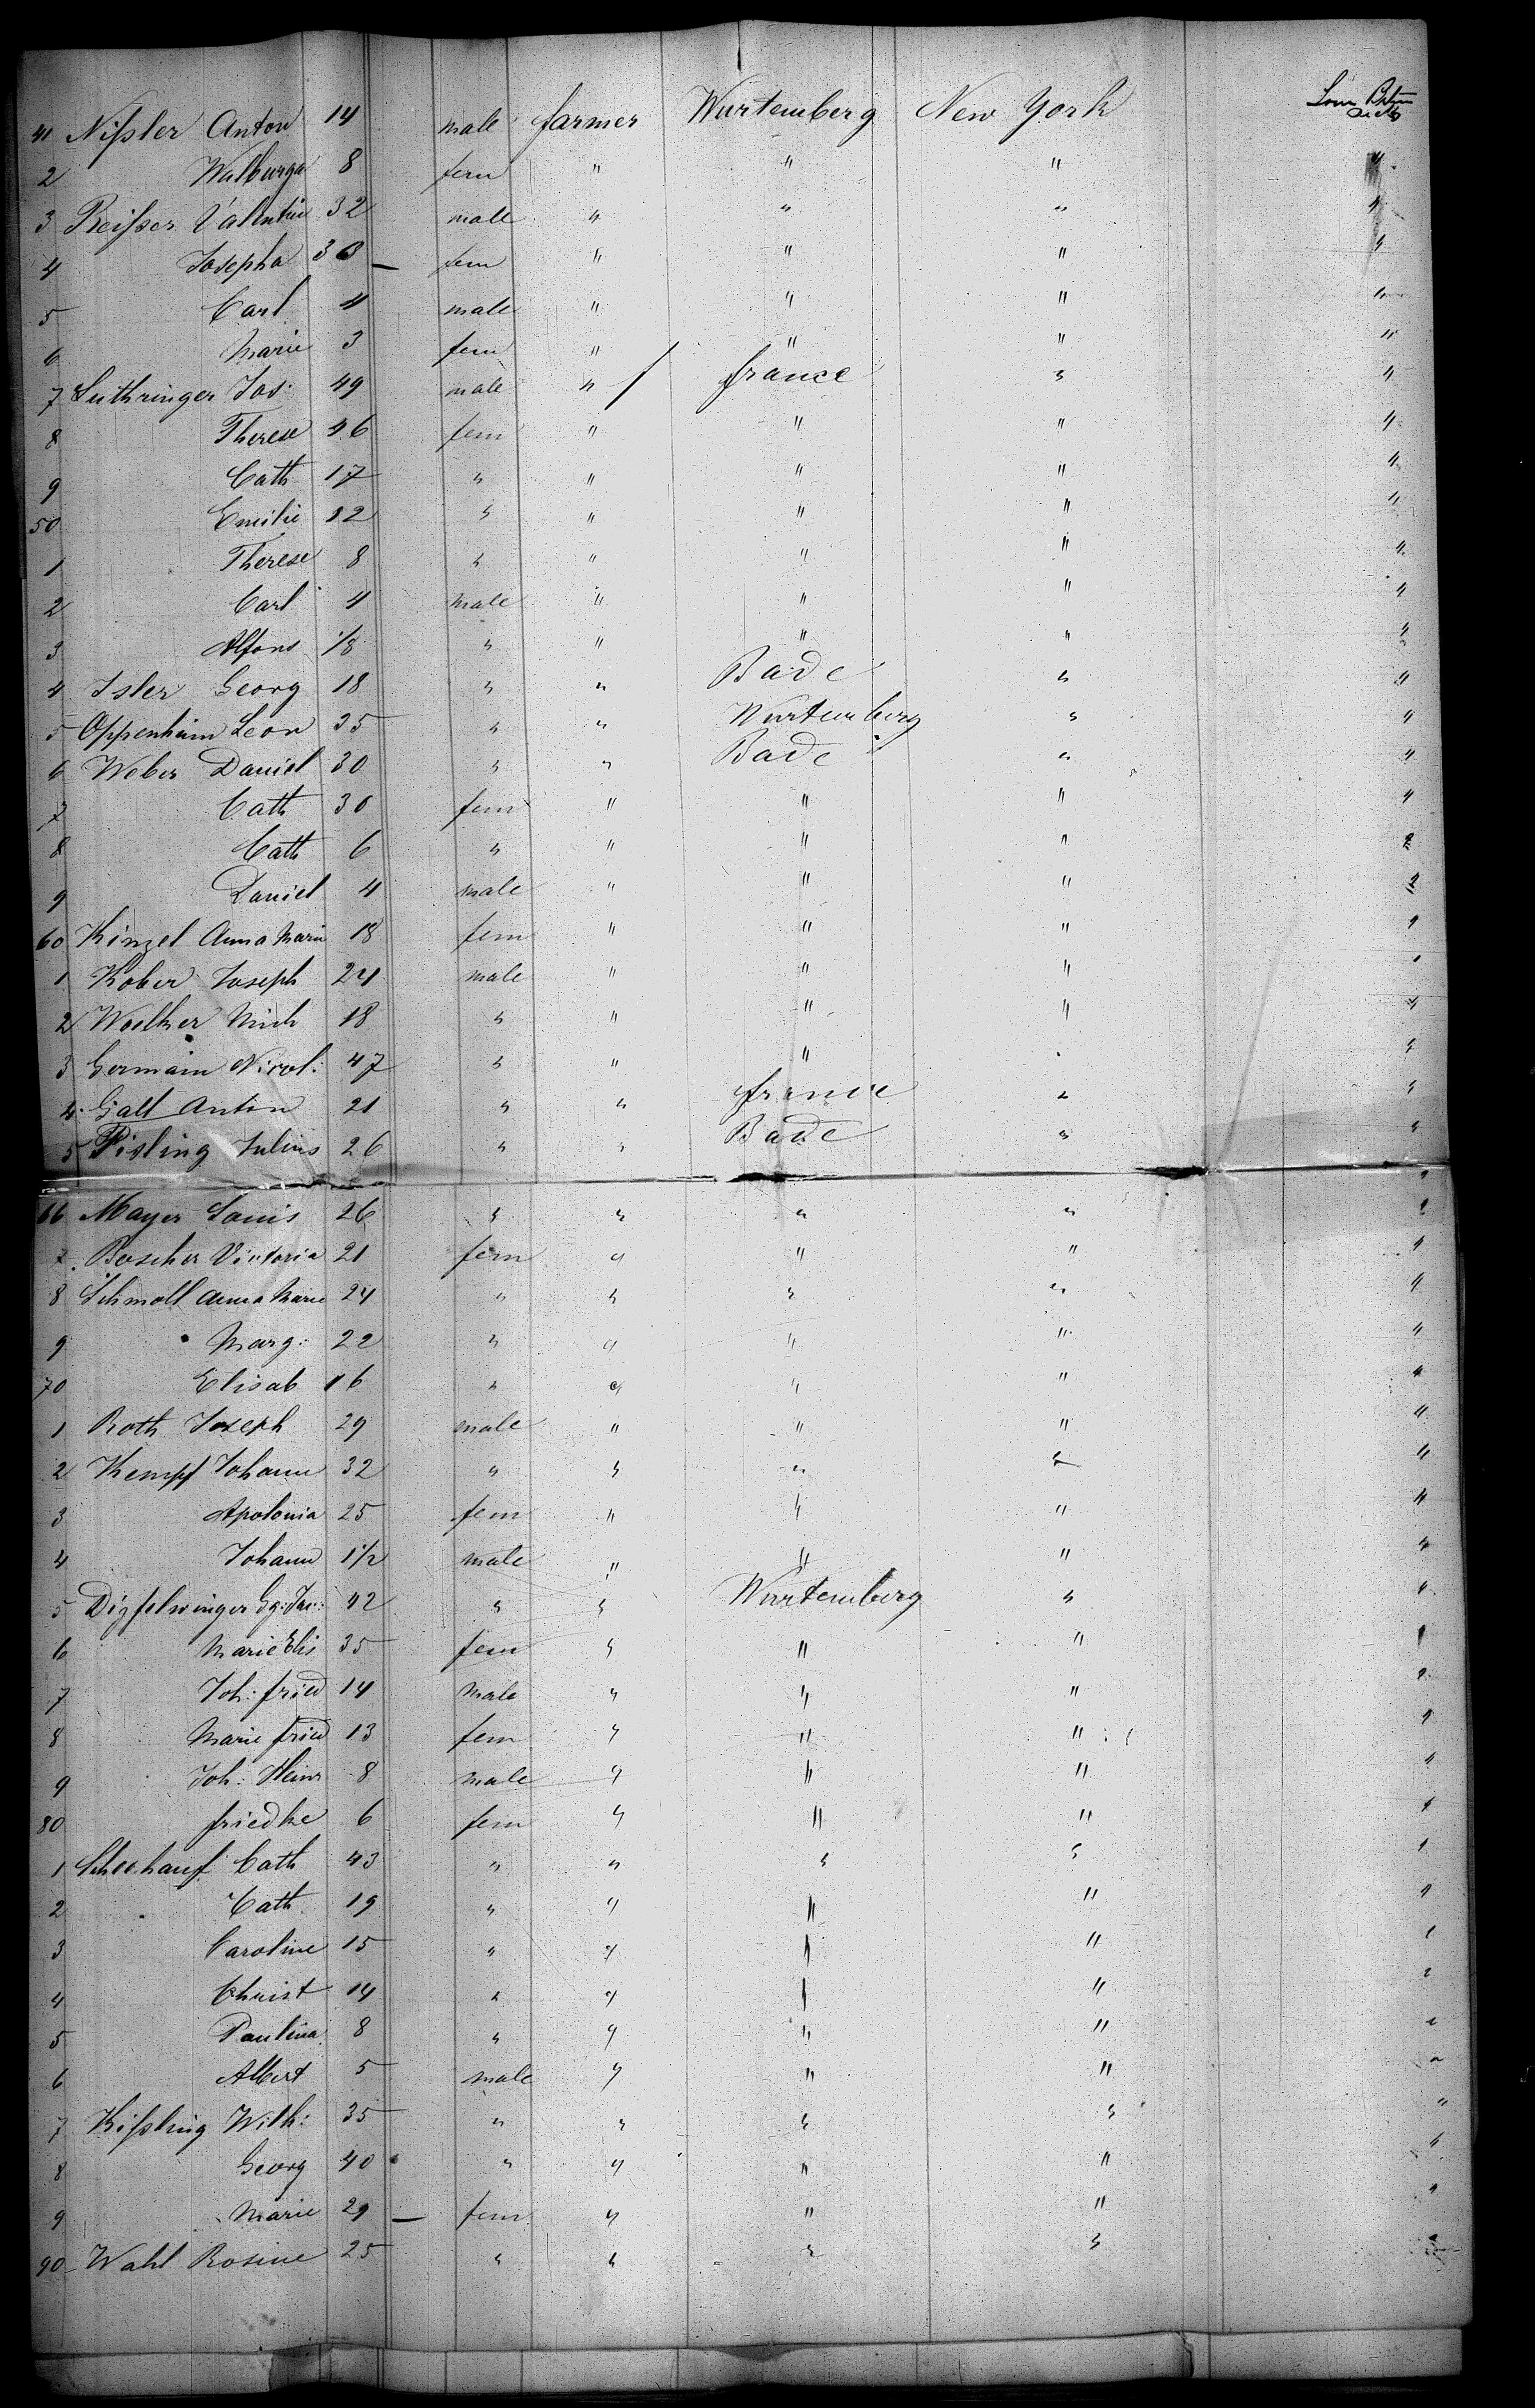 41 Nißler Anton 14 male farmer Wurtemberg New York
2 Walburga 8 fem " " " "
3 Reißer Valentin 32 male " " " "
4 Josepha 30 — fem " " " "
5 Carl 4 male " " " "
6 Marie 3 fem " " " "
7 Luthringer Jos: 49 male " / france " "
8 Therese 46 fem " " " "
9 Cath 17 " " " " "
50 Emilie 12 " " " " "
1 Therese 8 " " " " "
2 Carl 4 male " " " "
3 Alfons 1/8 " " " " "
4 Isler Georg 18 " " Bade " "
5 Oppenheim Leon 35 " " Wurtemberg " "
6 Weber Daniel 30 " " Bade " "
7 Cath 30 fem " " " "
8 Cath 6 " " " " "
9 Daniel 4 male " " " "
60 Kinzel Anna Marie 18 fem " " " "
1 Kober Joseph 24 male " " " "
2 Woelker Mich 18 " " " " "
3 Germain Nicol: 47 " " " " "
4 Gall Anton 21 " " france " "
5 Pisling Julius 26 " " Bade " "
66 Mayer Louis 26 " " " " "
7 Boscher Victoria 21 fem " " " "
8 Schmoll Anna Marie 24 " " " " "
9 Marg: 22 " " " " "
70 Elisab 16 " " " " "
1 Roth Joseph 29 male " " " "
2 Kempf Johann 32 " " " " "
3 Apolonia 25 fem " " " "
4 Johann 1 1/2 male " " " "
5 Dizfelwinger Gg: Jac: 42 " " Wurtemberg " "
6 Marie Elis 35 fem " " " "
7 Joh: fried 14 male " " " "
8 Marie fried 13 fem " " " "
9 Joh: Heinr 8 male " " " "
80 friedke 6 fem " " " "
1 Cath 43 " " " " "
2 Cath 19 " " " " "
3 Caroline 15 " " " " "
4 Christ 14 " " " " "
5 Paulina 8 " " " " "
6 Albert 5 male " " " "
7 Kißling Wilh: 35 " " " " "
8 Georg 40 " " " " "
9 Marie 29 — fem " " " "
90 Wahl Rosine 25 " " " " "